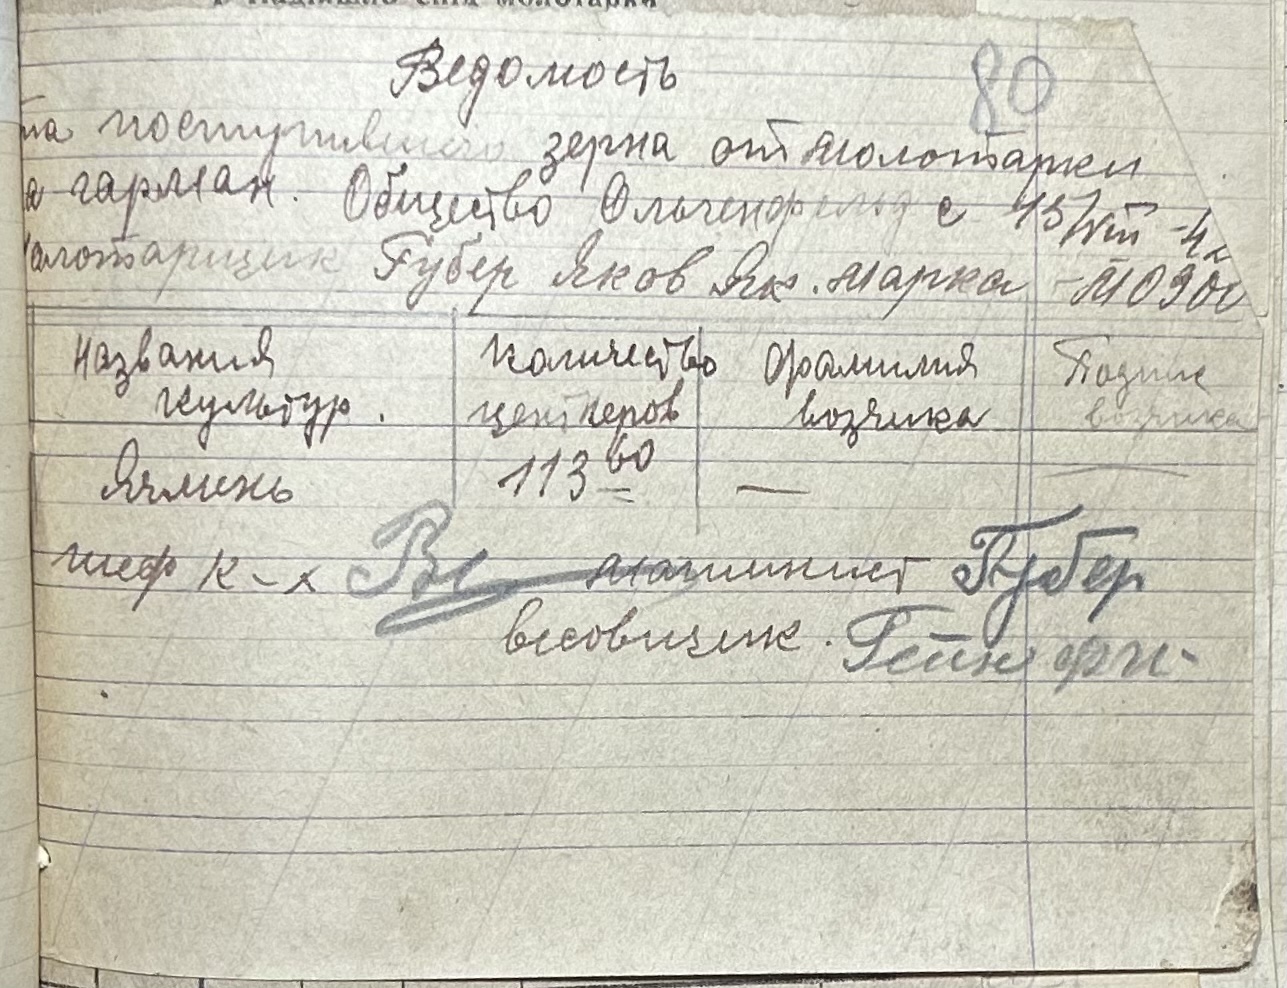 Надійшло спід молотарки
80
Ведомость
на поступившего зерна от молотарки
гарман. Общество Ольгенфельд с 15/VIII - 4
молотарщик Губер Яков Як. марка - М 0900
Названия культур.
Количество центнеров
Фамилия возчика
Подпис возчика
Ячмень 113 60 — —
шеф к-х машинист Губер
весовщик. Гейн